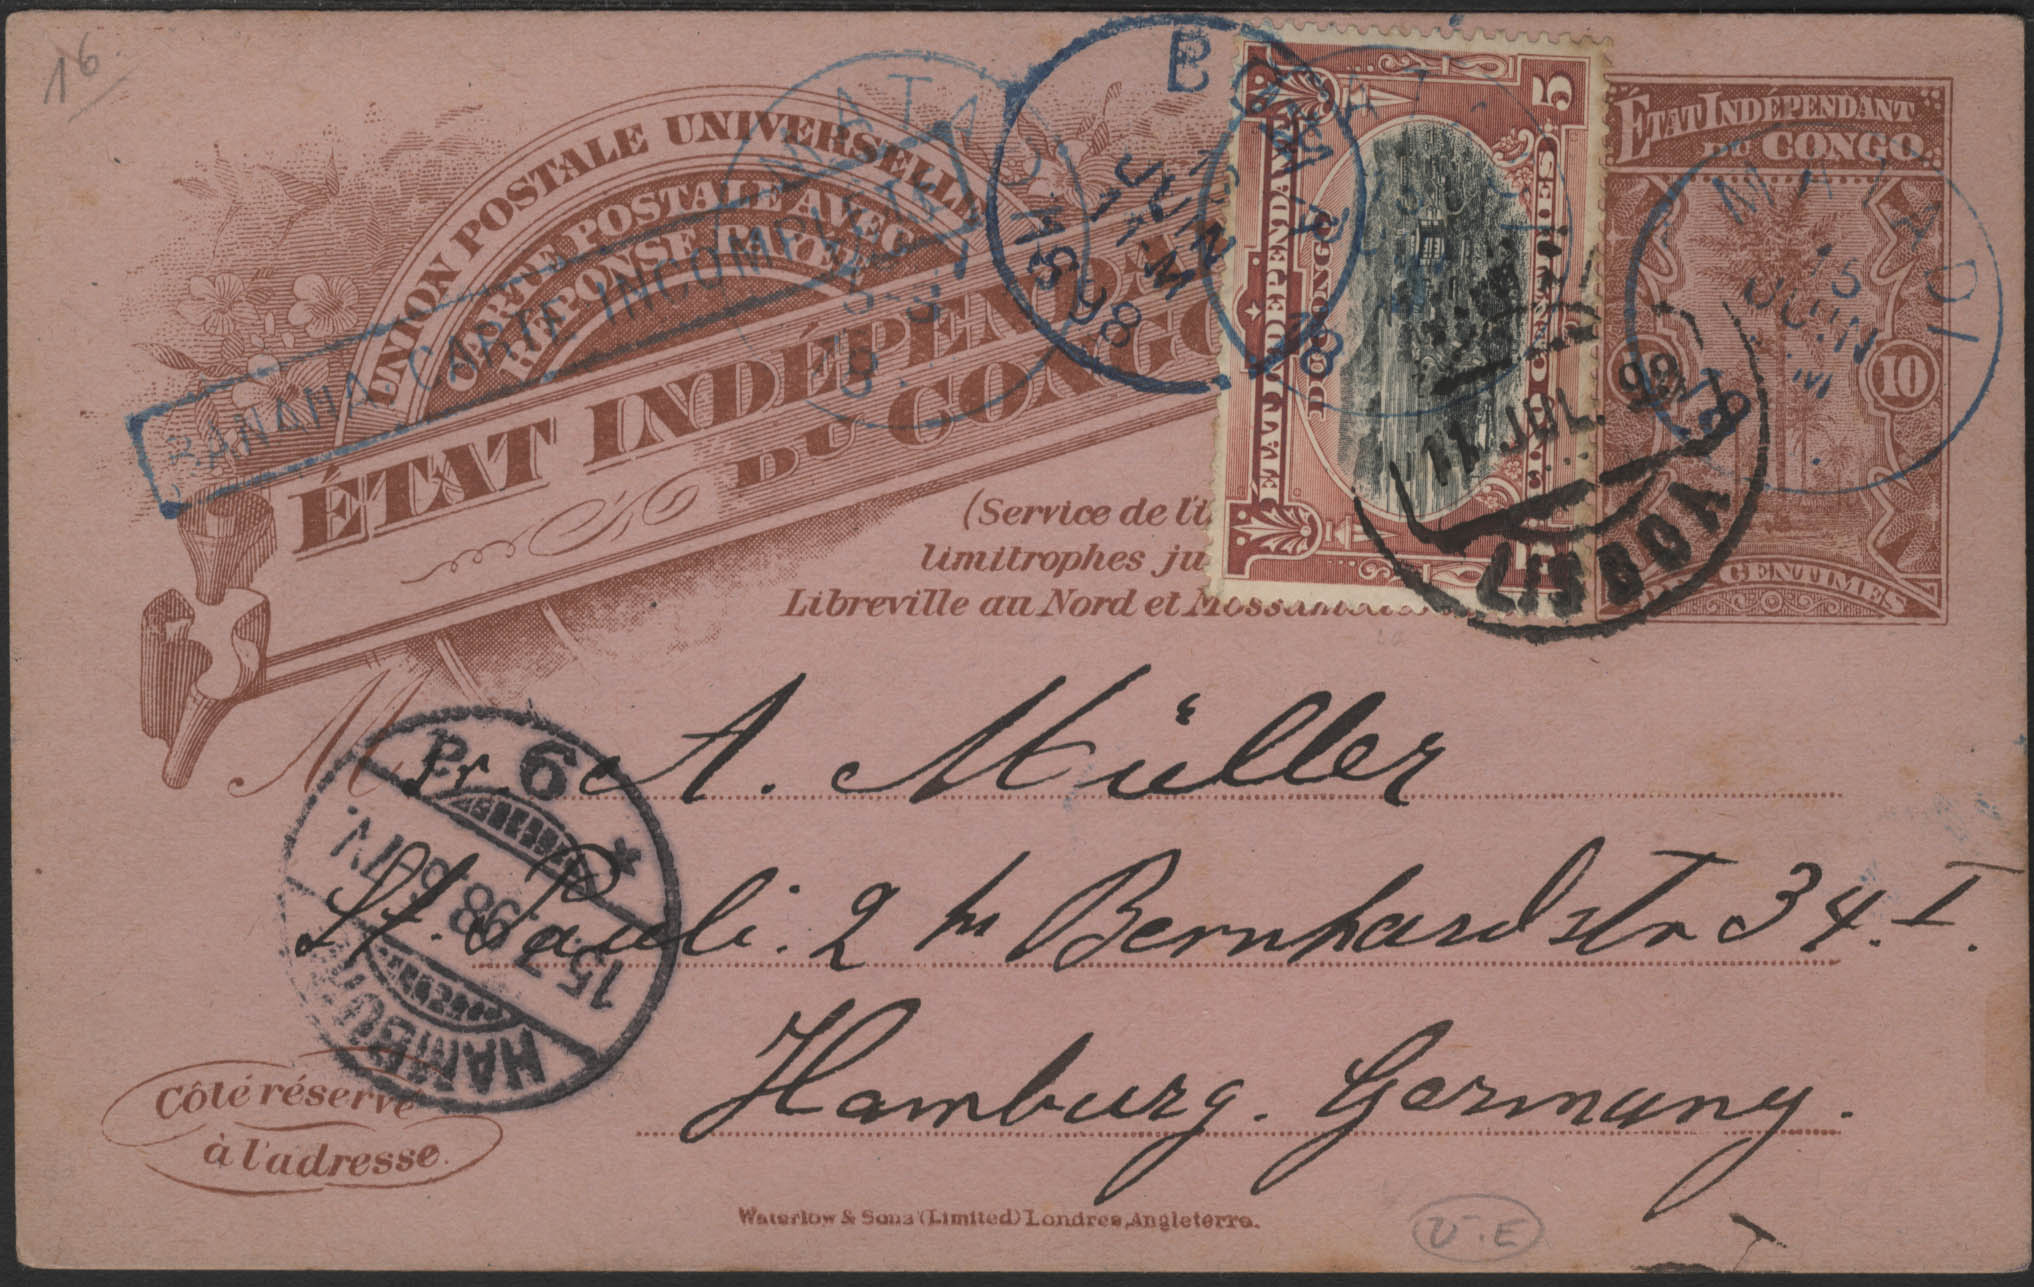 16
UNION POSTALE UNIVERSELLE
CARTE POSTALE AVEC
RÉPONSE PAYÉE
ÉTAT INDÉPENDANT
DU CONGO
BANANA CARTE INCOMPLÈTE
MATADI
BOMA
JUIN
M
98
5
ÉTAT INDÉPENDANT
DU CONGO
CINQ CENTIMES
11. JUL. 98
LISBOA
ÉTAT INDÉPENDANT
DU CONGO
10
CENTIMES
MATADI
15
JUIN
M
98
(Service de l'i
limitrophes ju
Libreville au Nord et Mossamédès
M
Pr. A. Müller
St. Pauli. 2 hs Bernhardstr 34. I.
Hamburg. Germany.
HAMBURG
15.7.98. 6-7N.
* 9
Côté réservé
à l'adresse.
Waterlow & Sons (Limited) Londres, Angleterre.
U.-E